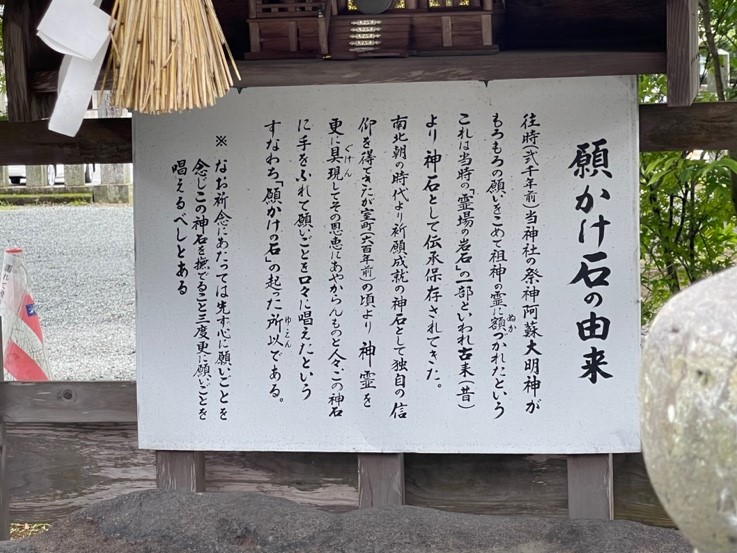 願かけ石の由来
往時(弐千年前)当神社の祭神阿蘇大明神が
もろもろの願いをこめて祖神の霊に額づかれたという
これは当時の「霊場の岩石」の一部といわれ古来(昔)
より神石として伝承保存されてきた。
南北朝の時代より祈願成就の神石として独自の信
仰を得てきたが室町(六百年前)の頃より神霊を
更に具現してその恩恵にあやからんものと人々この神石
に手をふれて願いごとを口々に唱えたという
すなわち「願かけの石」の起った所以である。
※なお祈念にあたっては先ず心に願いごとを
念じこの神石を撫でること三度更に願いごとを
唱えるべしとある